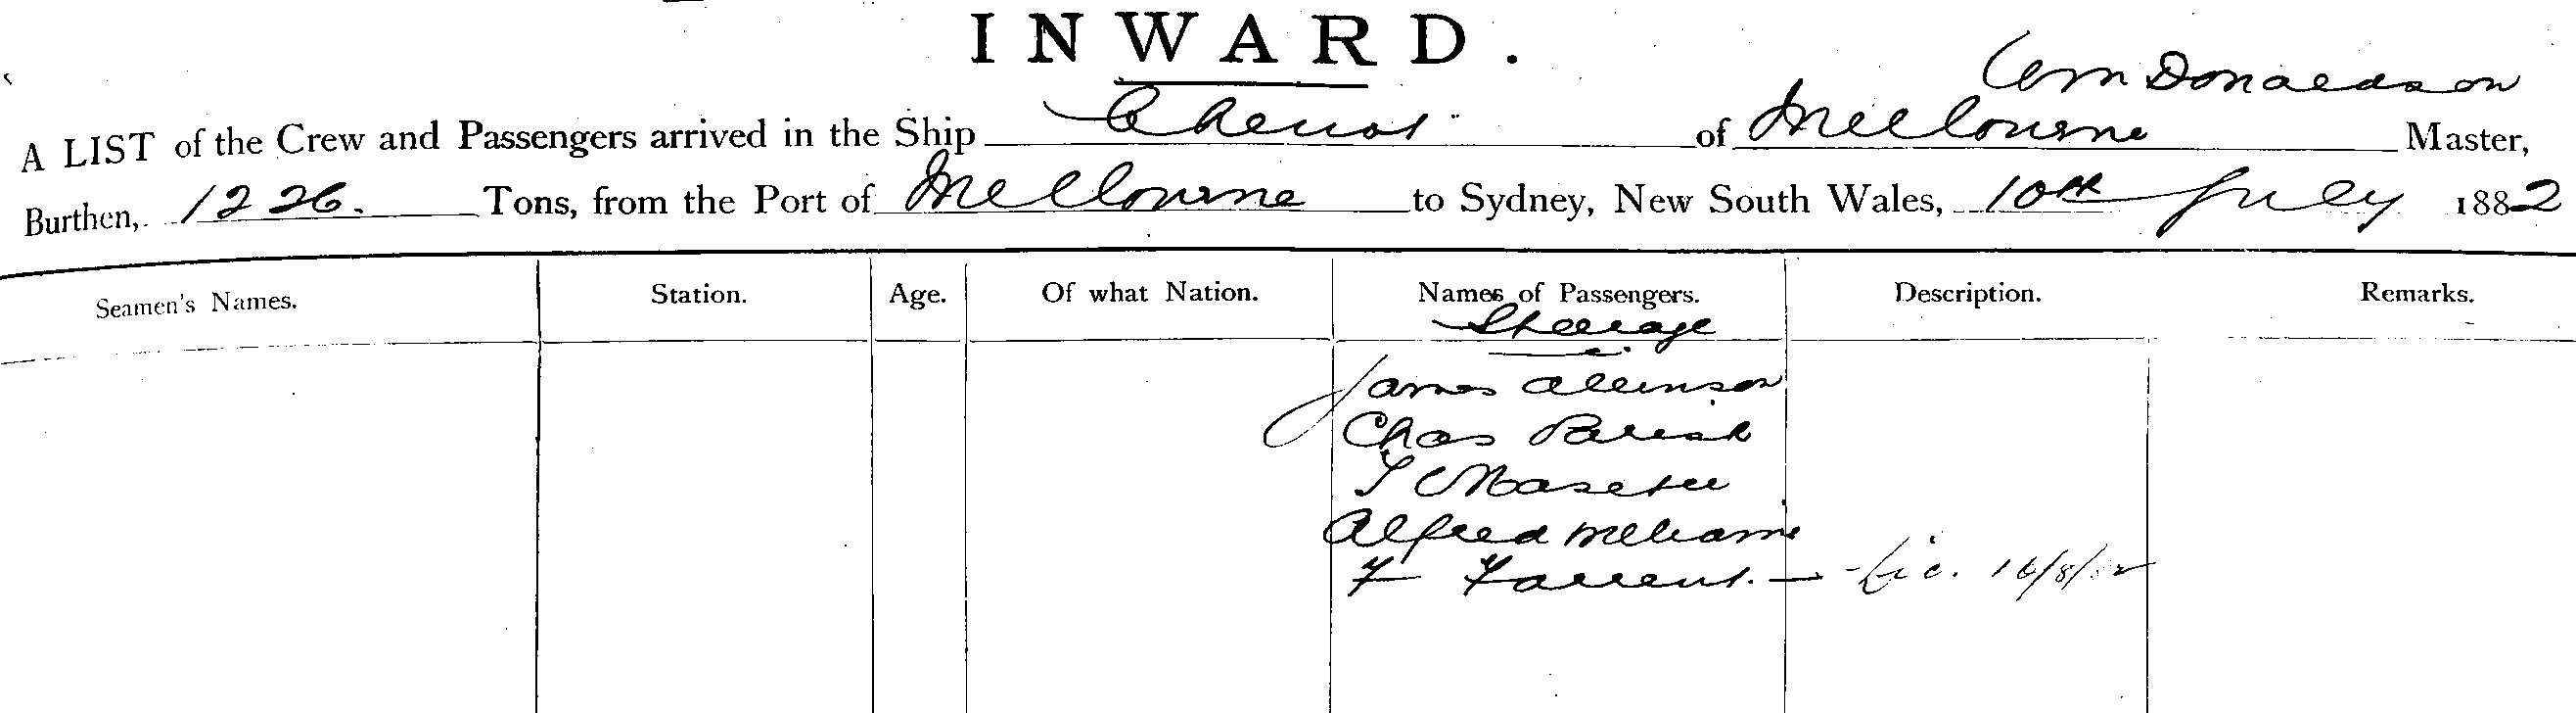 INWARD.
Wm Donaldson
A LIST of the Crew and Passengers arrived in the Ship Cheviot of Melbourne Master,
Burthen, 1226. Tons, from the Port of Melbourne to Sydney, New South Wales, 10th July 1882
Seamen's Names. Station. Age. Of what Nation. Names of Passengers. Description. Remarks.
Steerage
James Allinson
Chas Parish
Alfred Williams
F Farrent. — Lic. 16/8/82